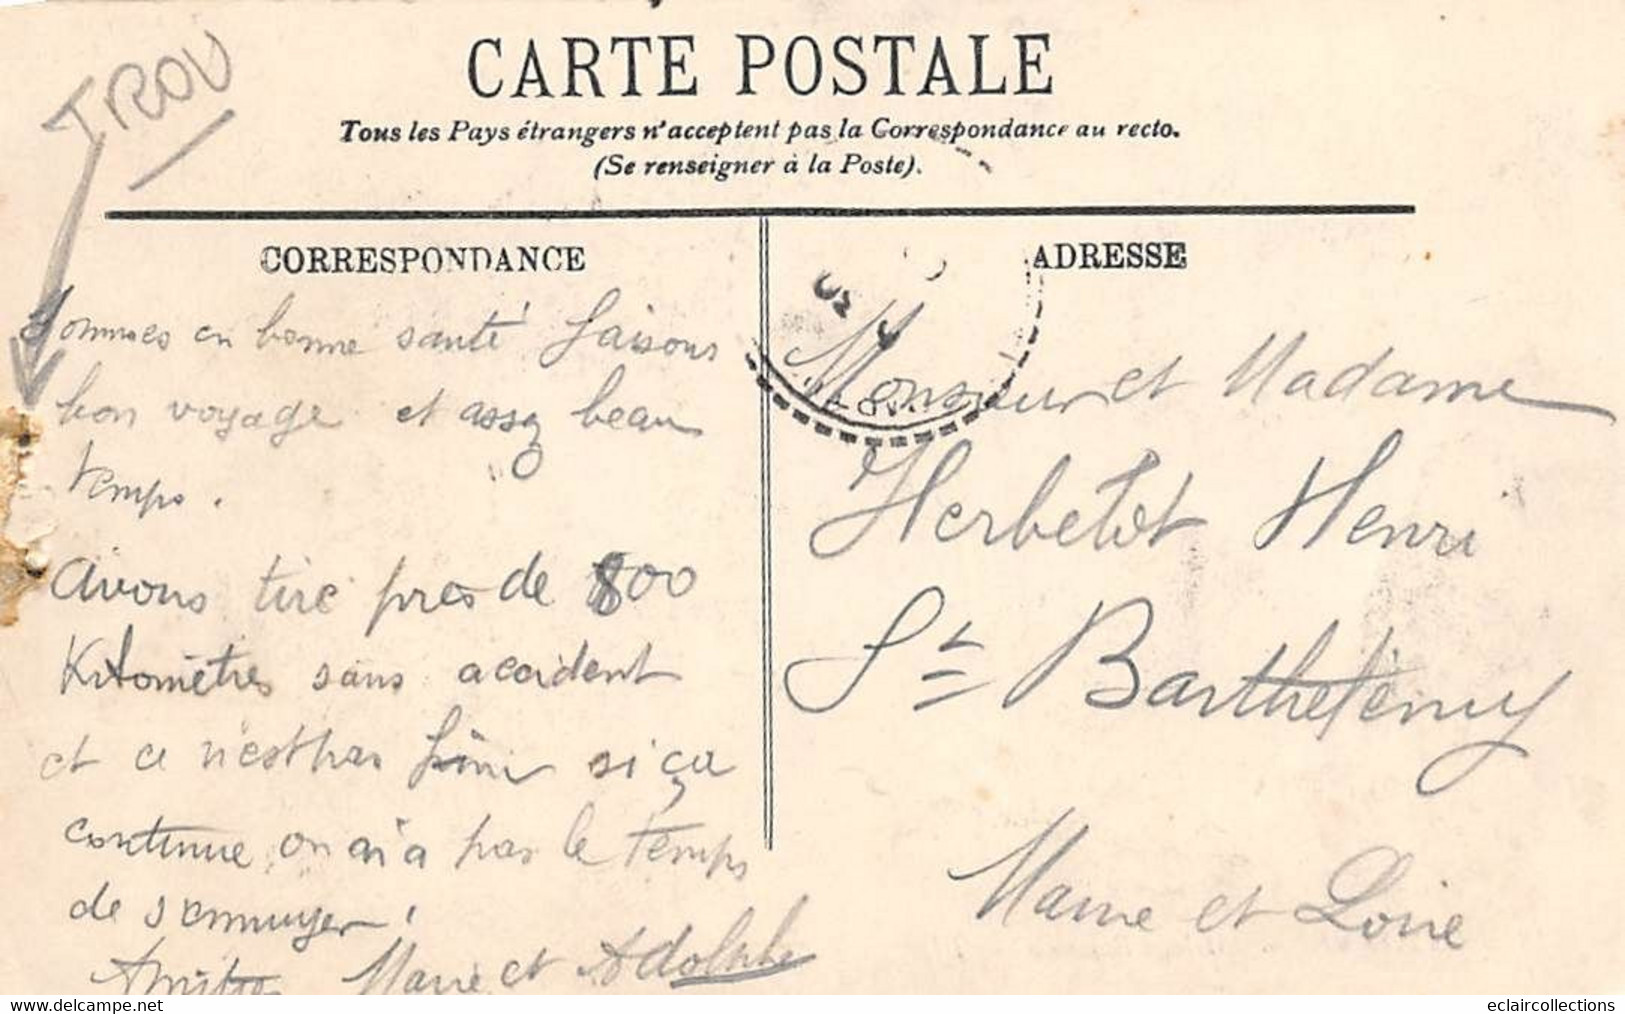 TROU
CARTE POSTALE
Tous les Pays étrangers n'acceptent pas la Correspondance au recto.
(Se renseigner à la Poste).
CORRESPONDANCE
Sommes en bonne santé faisons
bon voyage et assez beau
temps.
avons tiré près de 800
Kilomètres sans accident
et ce n'est pas fini si ça
continue on n'a pas le temps
de s'ennuyer!
Amitiés Marie et Adolphe
ADRESSE
Monsieur et Madame
Herbetot Henri
St Barthélemy
Maine et Loire
Delcampe.net
eclaircollections